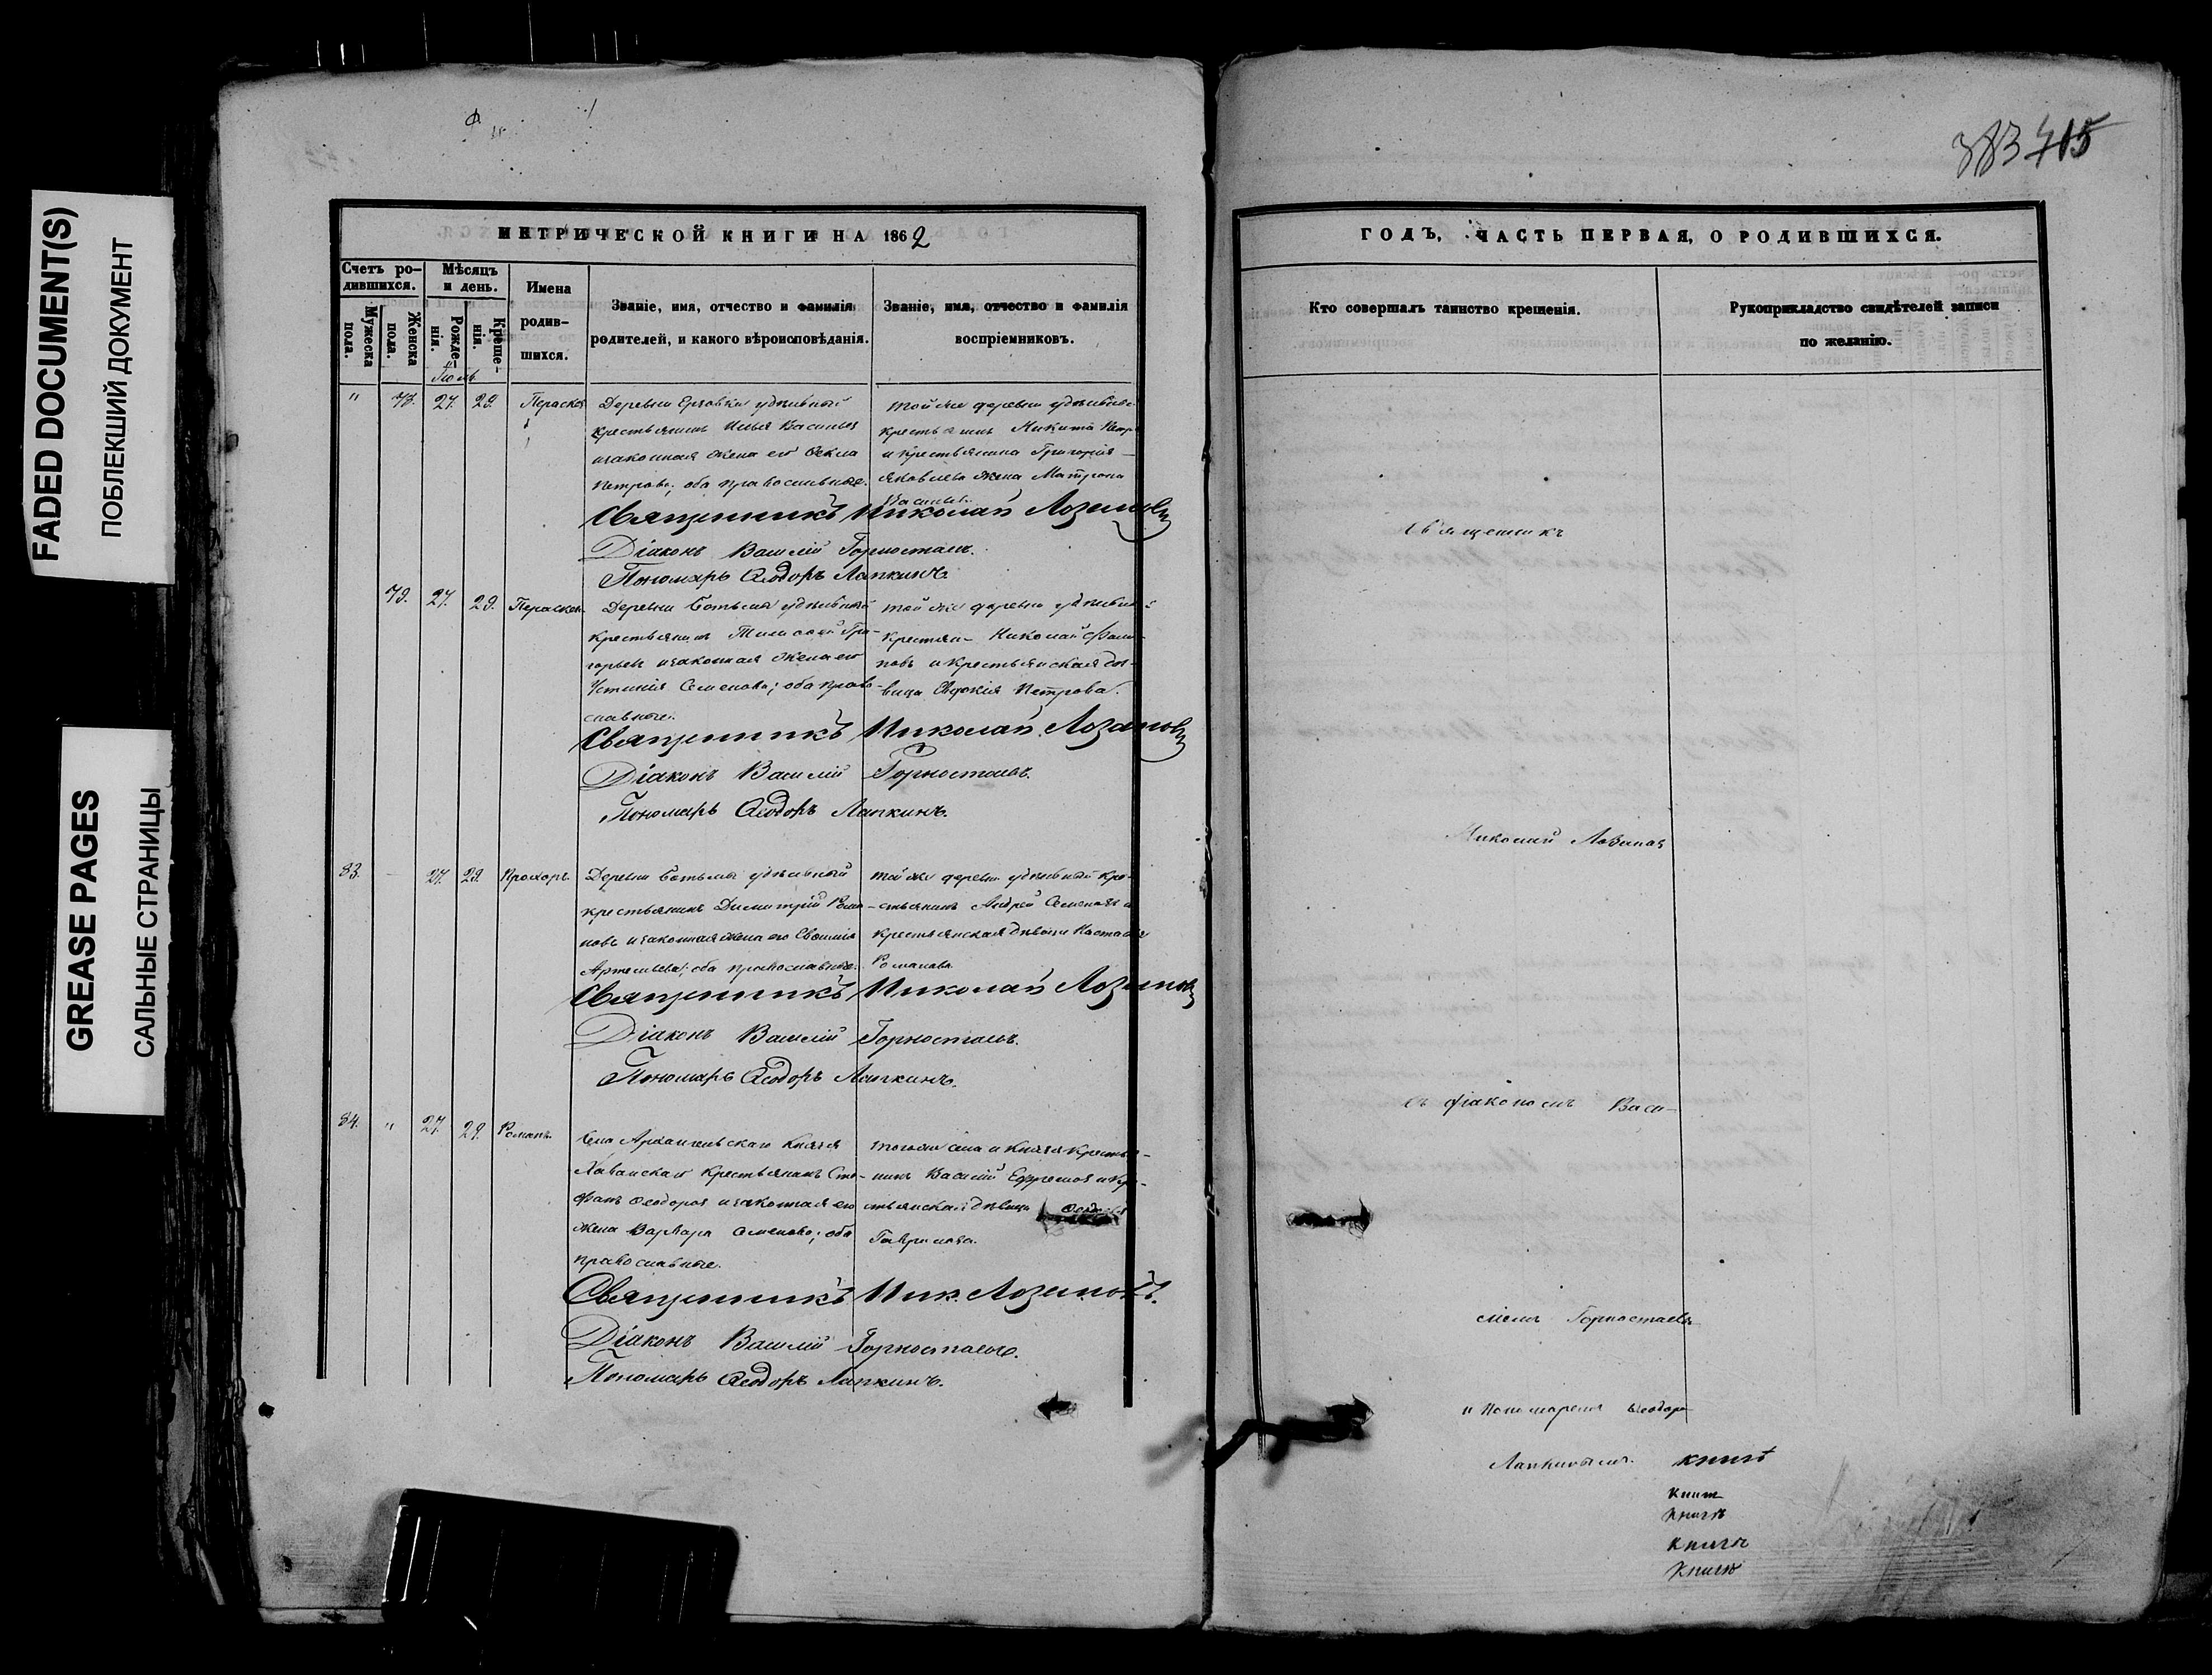 FADED DOCUMENT(S)
ПОБЛЕКШИЙ ДОКУМЕНТ
GREASE PAGES
САЛЬНЫЕ СТРАНИЦЫ
МЕТРИЧЕСКОЙ КНИГИ НА 1862
Счетъ ро-
дившихся.
Мужеска
пола.
Женска
пола.
Мѣсяцъ
и день.
Рожде-
нія.
Креще-
нія.
Имена
родив-
шихся.
Званіе, имя, отчество и фамилія
родителей, и какого вѣроисповѣданія.
Званіе, имя, отчество и фамилія
воспріемниковъ.
Іюль
" 78. 27. 29.
Деревни удѣльный
крестьянинъ Илья Васильев
и законная жена его Ѳекла
Петрова; оба православные.
той же деревни удѣльный
крестьянинъ Никита Петр
и крестьянина Григорія
Яковлева жена Матрона
Васильева
Священникъ Николай Лозановъ
Діаконъ Василій Горностаевъ.
Пономарь Ѳеодоръ Лапкинъ.
79. 27. 29.
Деревни Ботьмы удѣльный
крестьянинъ Тимоѳей Гри-
горьевъ и законная жена его
Устинія Семенова; оба право-
славные.
той же деревни удѣльный
крестьян- Николай Фили-
повъ и крестьянская дѣ-
вица Евдокія Петрова.
Священникъ Николай Лозановъ
Діаконъ Василій Горностаевъ.
Пономарь Ѳеодоръ Лапкинъ.
83. 27. 29. Прохоръ.
Деревни Ботьмы удѣльный
крестьянинъ Димитрій Рома
новъ и законная жена его
Артемьева; оба православные.
той же деревни удѣльный кре-
стьянинъ Андрей Семеновъ и
крестьянская дѣвица Настасія
Романова.
Священникъ Николай Лозановъ
Діаконъ Василій Горностаевъ.
Пономарь Ѳеодоръ Лапкинъ.
84. " 27. 29. Романъ.
Села Архангельскаго Князя
Хованскаго крестьянинъ Сте-
фанъ Ѳеодоровъ и законная его
жена Варвара Семенова; оба
православные.
тогоже села и Князя крестья-
нинъ Василій Ефремовъ и кре-
стьянская дѣвица
Гаврилова.
Священникъ Ник. Лозановъ.
Діаконъ Василій Горностаевъ.
Пономарь Ѳеодоръ Лапкинъ.
383 415
ГОДЪ, ЧАСТЬ ПЕРВАЯ, О РОДИВШИХСЯ.
Кто совершалъ таинство крещенія.
Рукоприкладство свидѣтелей записи
по желанію.
Священникъ
Николай Лозановъ
съ діакономъ Васи-
ліемъ Горностаевъ
и Пономаремъ Ѳеодор
Лапкинымъ. книгѣ
книг
книгѣ
книгѣ
книгѣ